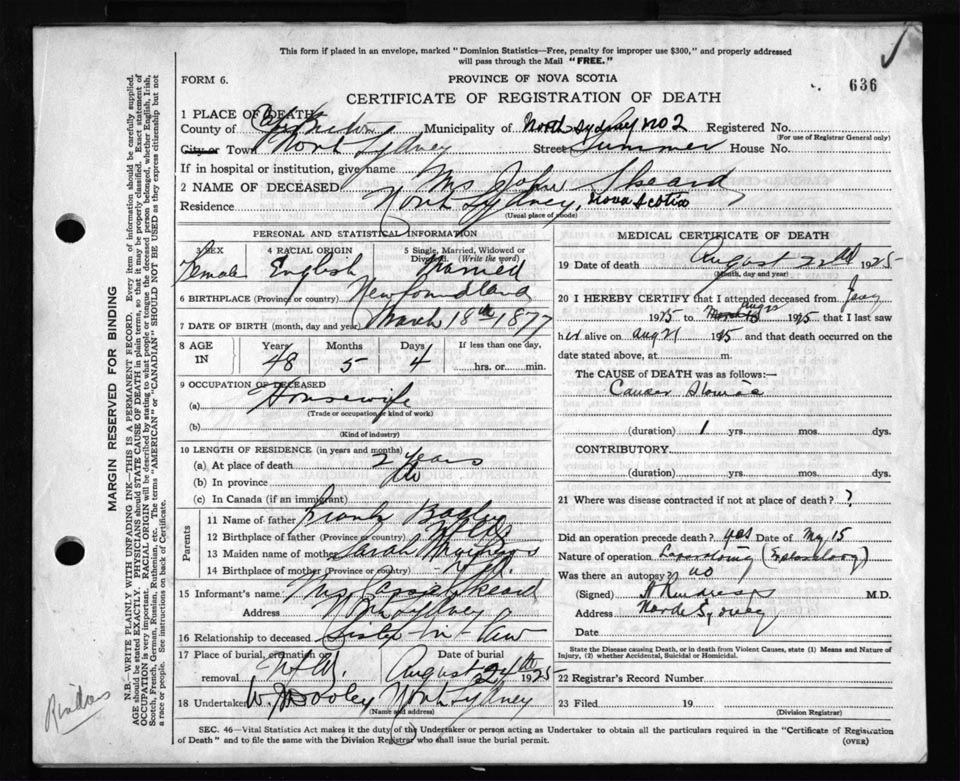 This form if placed in an envelope, marked "Dominion Statistics—Free, penalty for improper use $300," and properly addressed
will pass through the Mail "FREE."
FORM 6.
PROVINCE OF NOVA SCOTIA
636
CERTIFICATE OF REGISTRATION OF DEATH
1 PLACE OF DEATH
County of Municipality of North Sydney No 2 Registered No.
(For use of Registrar General only)
City or Town North Sydney Street Summer House No.
If in hospital or institution, give name
2 NAME OF DECEASED Ms John Skeard
Residence North Sydney, Nova Scotia
(Usual place of abode)
PERSONAL AND STATISTICAL INFORMATION
3 SEX 4 RACIAL ORIGIN 5 Single, Married, Widowed or Divorced. (Write the word)
Female English Married
6 BIRTHPLACE (Province or country) Newfoundland
7 DATE OF BIRTH (month, day and year) March 18th 1877
8 AGE IN Years Months Days If less than one day,
48 5 4 hrs. or min.
9 OCCUPATION OF DECEASED
(a) Housewife
(Trade or occupation or kind of work)
(b)
(Kind of industry)
10 LENGTH OF RESIDENCE (in years and months)
(a) At place of death 2 Years
(b) In province do
(c) In Canada (if an immigrant)
Parents
11 Name of father Frank
12 Birthplace of father (Province or country) Nfld
13 Maiden name of mother Sarah
14 Birthplace of mother (Province or country)
15 Informant's name Skeard
Address North Sydney
16 Relationship to deceased Sister-in-law
17 Place of burial, cremation or removal Date of burial
August 24th 1925
18 Undertaker W. J. Dooley North Sydney
(Name and address)
MEDICAL CERTIFICATE OF DEATH
19 Date of death August 22nd 1925
(Month, day and year)
20 I HEREBY CERTIFY that I attended deceased from
1925 to 1925 that I last saw
h alive on Aug 21 1925 and that death occurred on the
date stated above, at m.
The CAUSE of DEATH was as follows:—
Cancer Stomac
(duration) 1 yrs. mos. dys.
CONTRIBUTORY
(duration) yrs. mos. dys.
21 Where was disease contracted if not at place of death? ?
Did an operation precede death? yes Date of May 15
Nature of operation Laparotomy (Exploratory)
Was there an autopsy? no
(Signed) M.D.
Address North Sydney
Date
State the Disease causing Death, or in death from Violent Causes, state (1) Means and Nature of
Injury, (2) whether Accidental, Suicidal or Homicidal.
22 Registrar's Record Number
23 Filed 19
(Division Registrar)
SEC. 46—Vital Statistics Act makes it the duty of the Undertaker or person acting as Undertaker to obtain all the particulars required in the "Certificate of Registration
of Death" and to file the same with the Division Registrar who shall issue the burial permit.
(OVER)
MARGIN RESERVED FOR BINDING
N.B.—WRITE PLAINLY WITH UNFADING INK—THIS IS A PERMANENT RECORD. Every item of information should be carefully supplied.
AGE should be stated EXACTLY. PHYSICIANS should STATE CAUSE OF DEATH in plain terms, so that it may be properly classified. Exact statement of
OCCUPATION is very important. RACIAL ORIGIN will be described by stating to what people or tongue the deceased person belonged, whether English, Irish,
Scotch, French, German, Russian, Ruthenian, etc. The terms "AMERICAN" or "CANADIAN" SHOULD NOT BE USED as they express citizenship but not
a race or people. See instructions on back of Certificate.